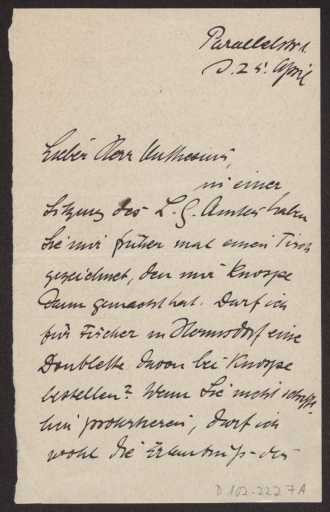 Parallelstr. 1.
d. 25. April
Lieber Herr Muthesius,
in einer
Sitzung des L. G. Amtes haben
Sie mir früher mal einen Tisch
gezeichnet, den mir Knospe
dann gemacht hat. Darf ich
für Fischer in Hermsdorf eine
Doublette davon bei Knospe
bestellen? Wenn Sie nicht
hin protestieren, darf ich
wohl die Erlaubniß
D 102-2227A